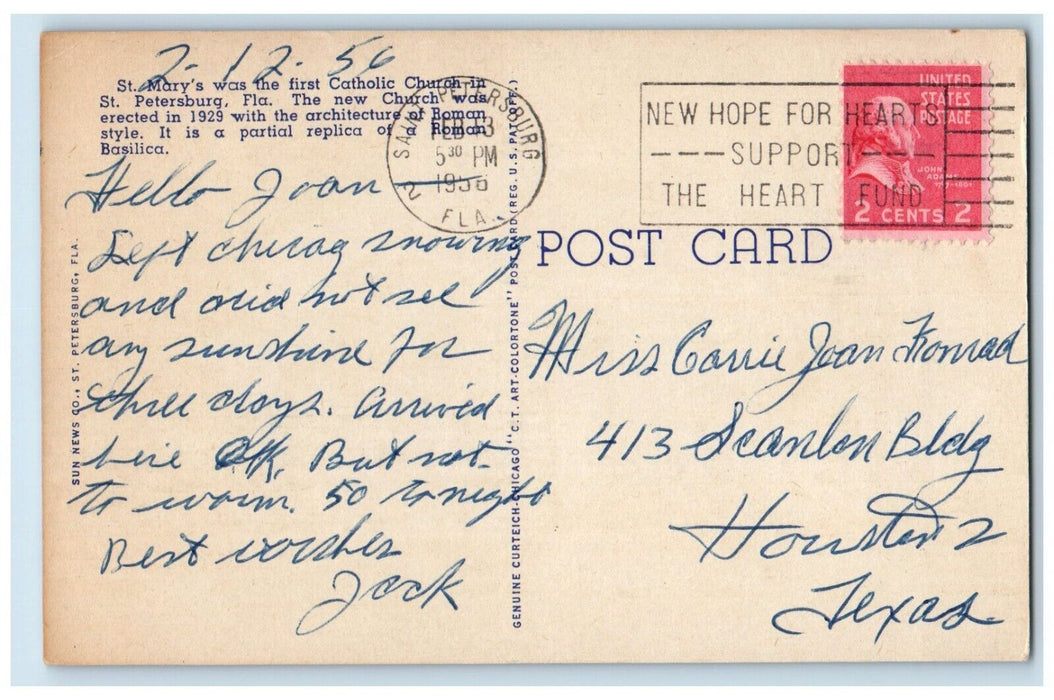 2-12-56
St. Mary's was the first Catholic Church in
St. Petersburg, Fla. The new Church was
erected in 1929 with the architecture of Roman
style. It is a partial replica of a Roman
Basilica.
Hello Joan
Left chicag snowing
and did not see
any sunshine for
three days. Arrived
here OK. But not
to warm. 50 tonight
Best wishes
Jack
SUN NEWS CO., ST. PETERSBURG, FLA.
GENUINE CURTEICH-CHICAGO "C. T. ART-COLORTONE" POST CARD (REG. U. S. PAT. OFF.)
SAINT PETERSBURG
2
FEB 13
5 30 PM
1956
FLA.
NEW HOPE FOR HEARTS
SUPPORT
THE HEART FUND
UNITED
STATES
POSTAGE
JOHN
ADAMS
2 CENTS 2
POST CARD
Miss Carrie Joan
413 Scanlon Bldg
Houston 2
Texas.